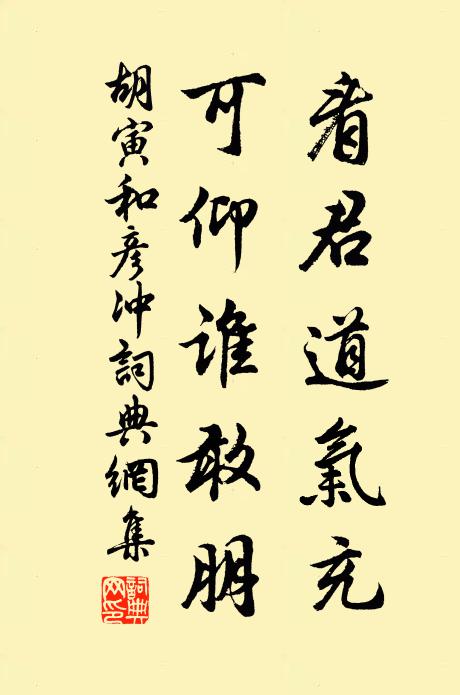 看君道氣充
可仰誰敢朋
胡寅和彥沖詞典網集
詞典网印